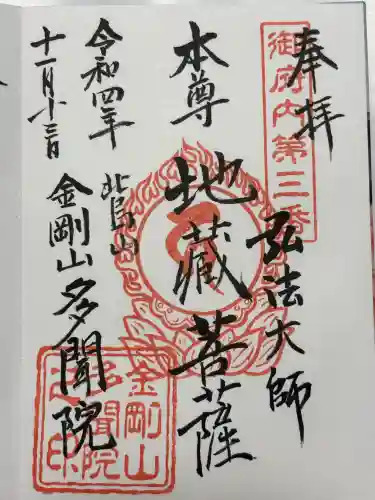 奉拝
御府内第三番
弘法大師
本尊
地蔵菩薩
令和四年
十一月十三日
北島山
金剛山多聞院
金剛山
多聞院
之印